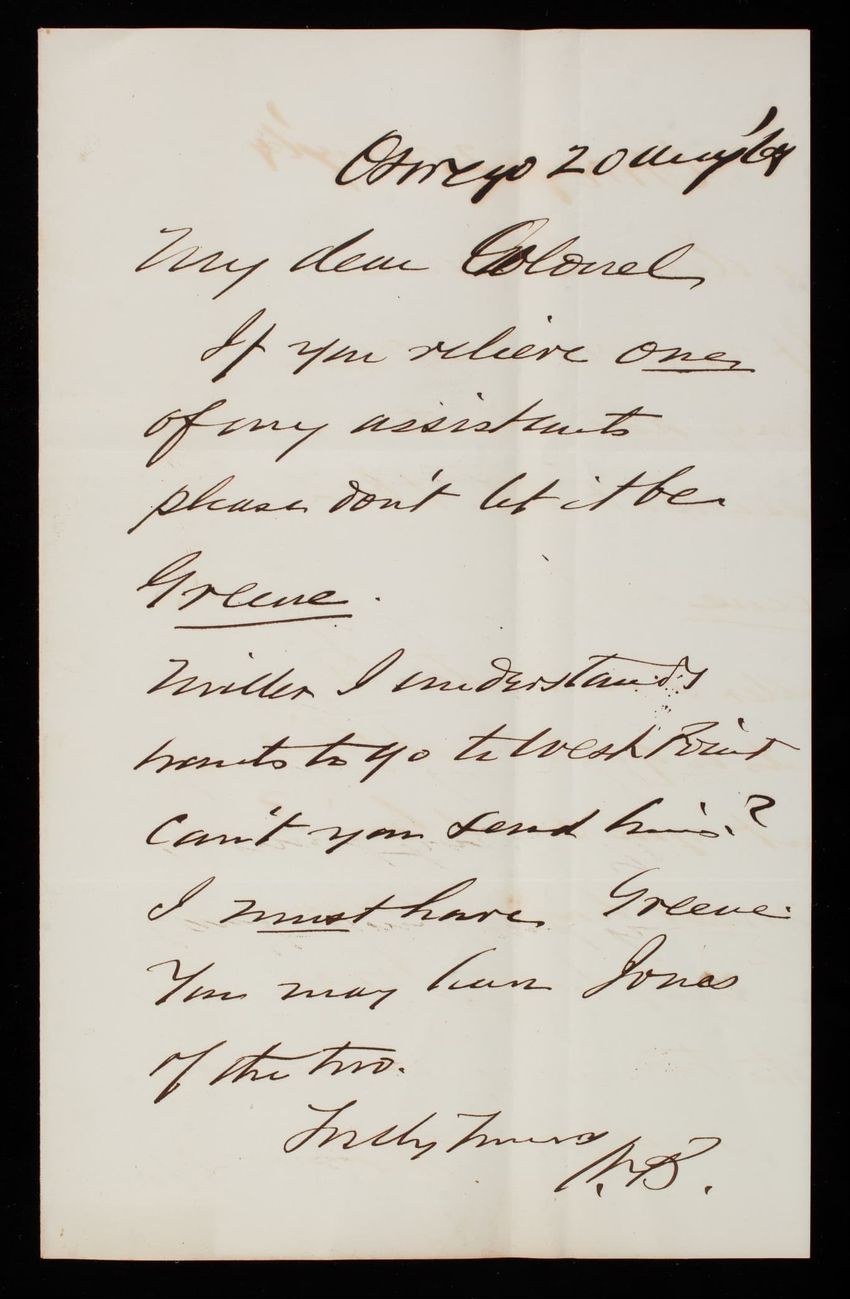 Oswego 20 Aug '69
My dear Colonel,
If you relieve one
of my assistants
please don't let it be
Greene.
Miller I understands
wants to go to West Point
Can't you send him?
I must have Greene.
You may have Jones
of the two.
Truly Yours
B.